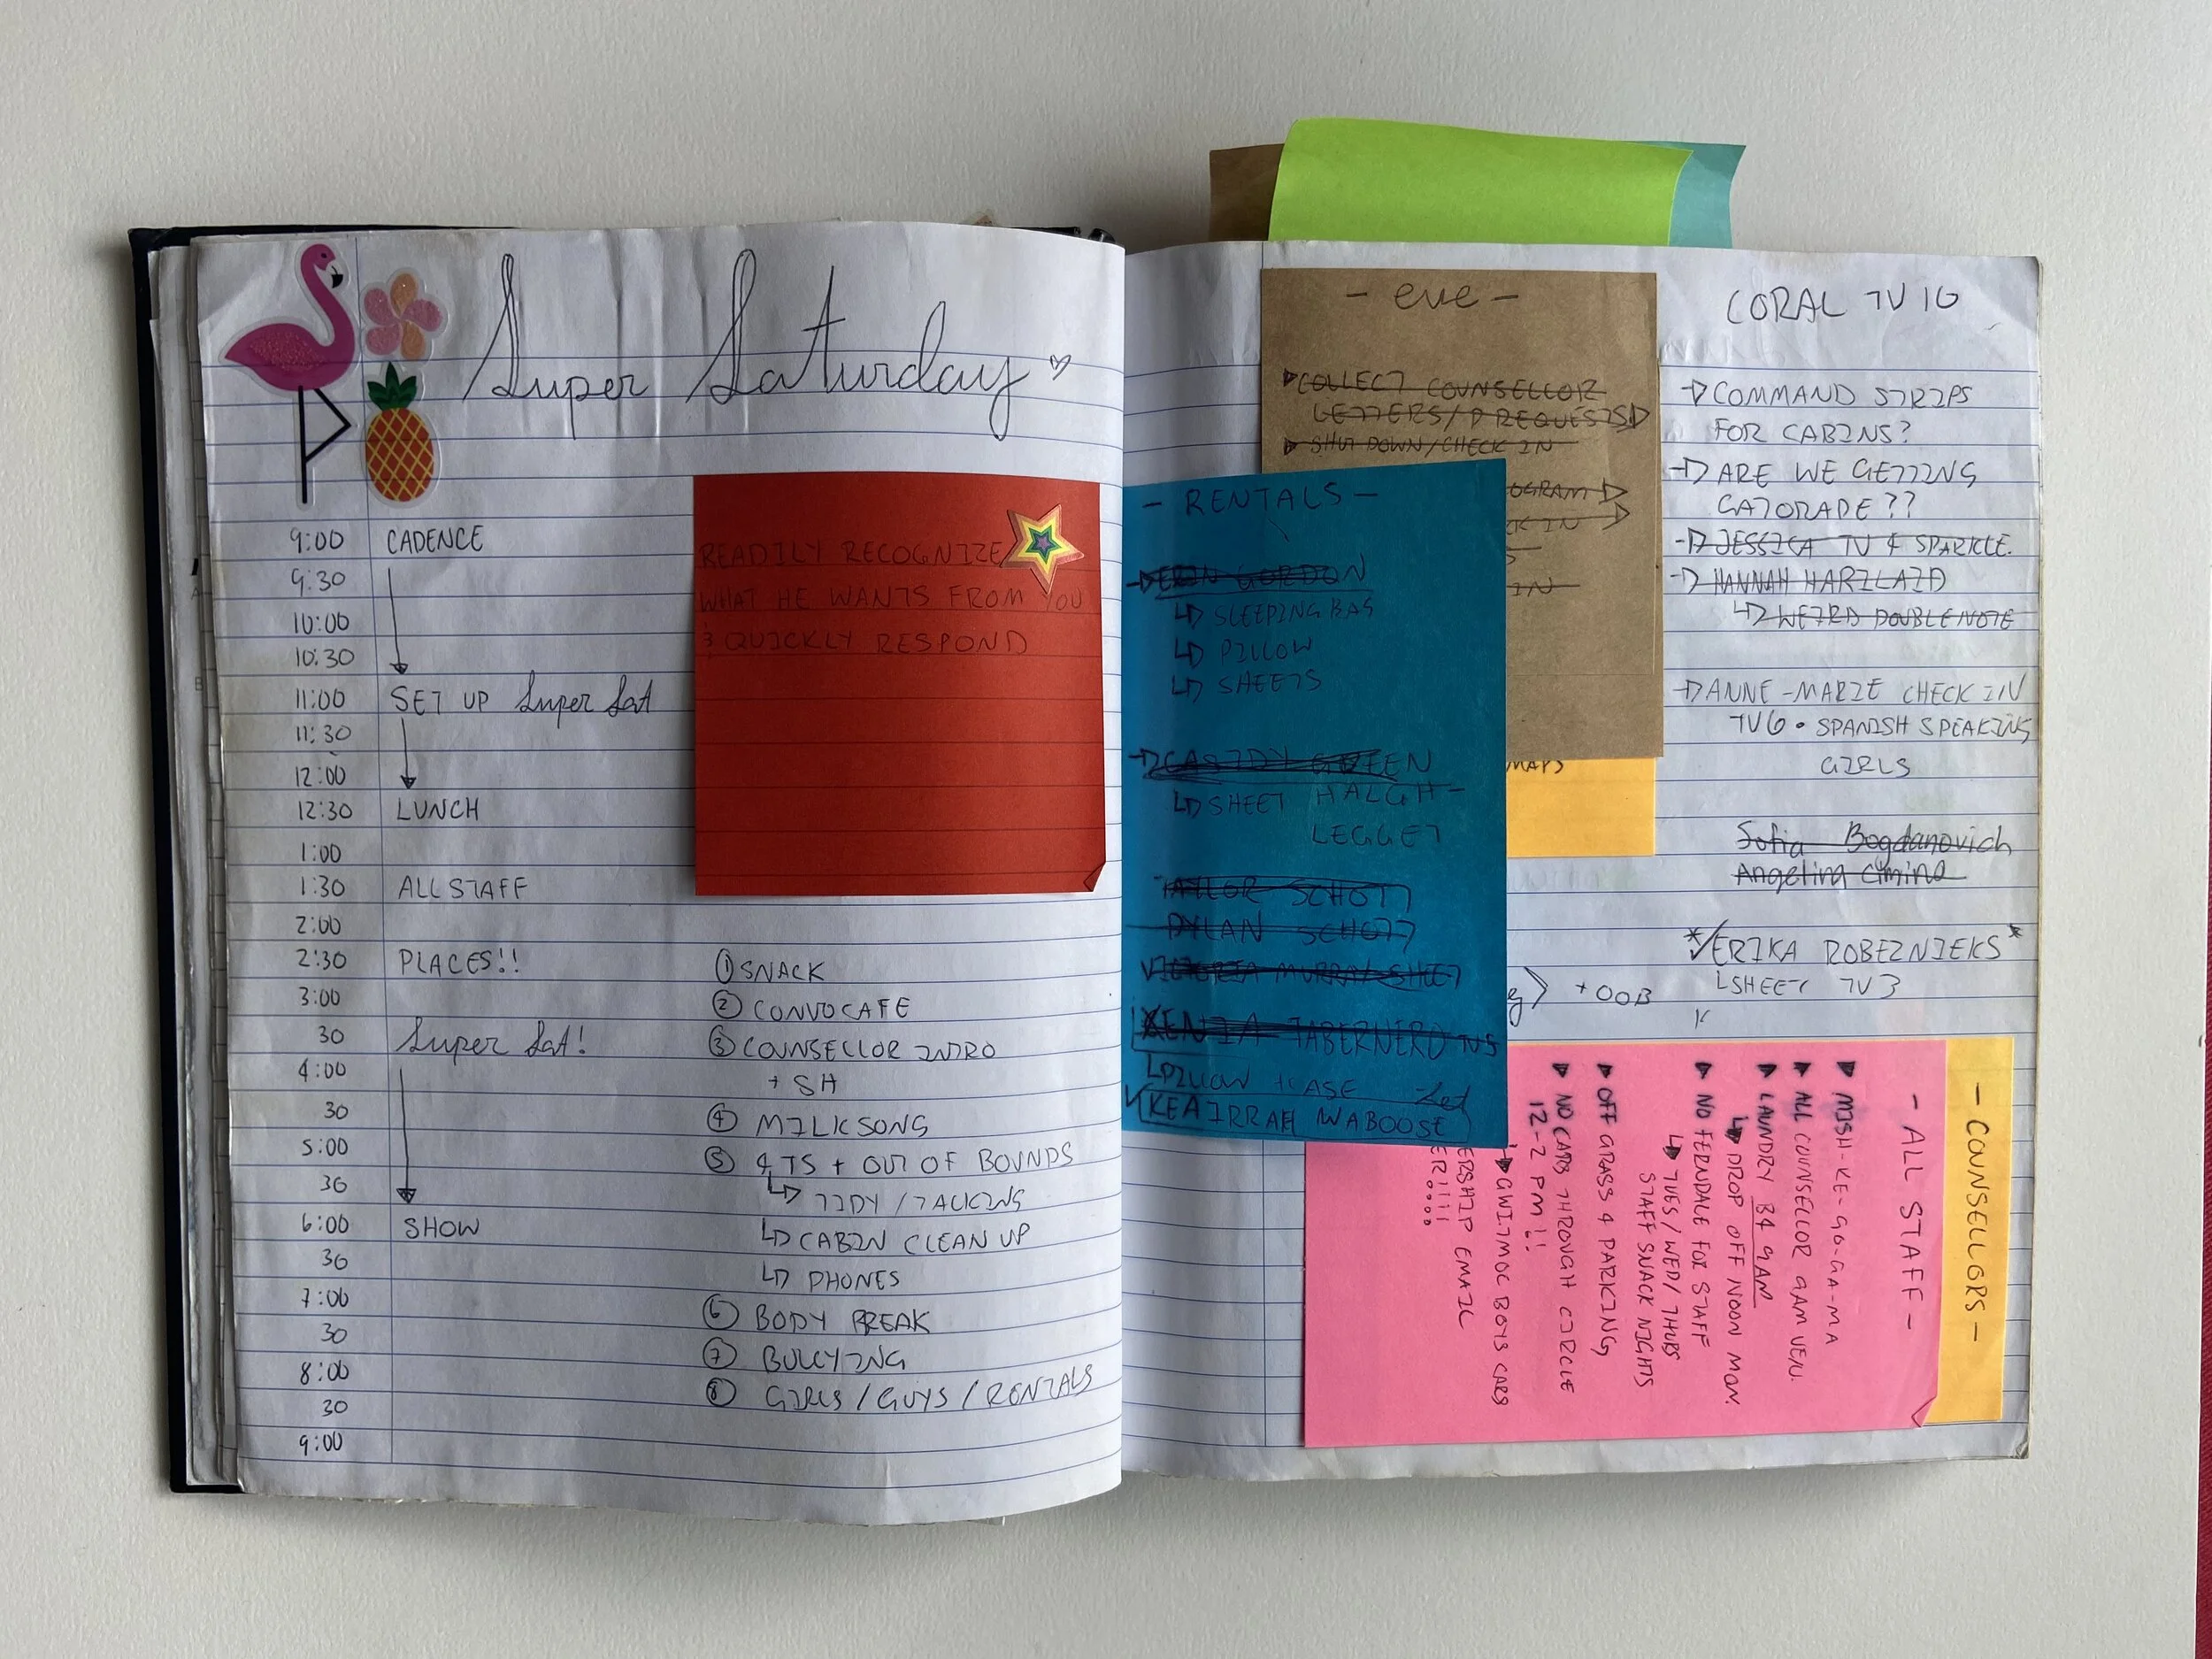 Super Saturday
9:00 CADENCE
9:30
10:00
10:30
11:00 SET UP Super Sat
11:30
12:00
12:30 LUNCH
1:00
1:30 ALL STAFF
2:00
2:30 PLACES!!
3:00
30 Super Sat!
4:00
30
5:00
30
6:00 SHOW
30
7:00
30
8:00
30
9:00
READILY RECOGNIZE
WHAT HE WANTS FROM YOU
& QUICKLY RESPOND
① SNACK
② CONVOCAFE
③ COUNSELLOR INTRO
+ SH
④ MILK SONG
⑤ 4 TS + OUT OF BOUNDS
↳ TIDY / TALKING
↳ CABIN CLEAN UP
↳ PHONES
⑥ BODY BREAK
⑦ BULLYING
⑧ GIRLS / GUYS / RENTALS
- eve -
COLLECT COUNSELLOR
LETTERS/P REQUESTS
SHUT DOWN/CHECK IN
OGRAM
IN
IN
MAPS
- RENTALS -
ERIN GORDON
↳ SLEEPING BAG
↳ PILLOW
↳ SHEETS
CASIDY GREEN
↳ SHEET HALGH-
LEGGET
TAYLOR SCHOTT
DYLAN SCHOTT
VICTORIA MURRAY SHEET
XENIA TABERNERO
↳ PILLOW + CASE
KEAIRRAH WABOOSE
CORAL TV 10
→ COMMAND STRIPS
FOR CABINS?
→ ARE WE GETTING
GATORADE??
→ JESSICA TV & SPARKLE.
→ HANNAH HARTLAID
↳ WEIRD DOUBLE NOTE
→ ANNE-MARIE CHECK IN
TV6 • SPANISH SPEAKING
GIRLS
Sofia Bogdanovich
Angelina Cimino
* ✓ ERIKA ROBEZNIEKS *
↳ SHEET TV3
+ OOB
- COUNSELLORS -
- ALL STAFF -
MISH-KE-GO-GA-MA
ALL COUNSELLOR 9AM VENU.
LAUNDRY B4 9AM
↳ DROP OFF NOON MON.
NO FERNDALE FOR STAFF
↳ TUES/WED/THURS
STAFF SNACK NIGHTS
OFF GRASS & PARKING
NO CARS THROUGH CIRCLE
12-2 PM!!
GWITMOC BOYS CARS
ERSHIP EMAIL